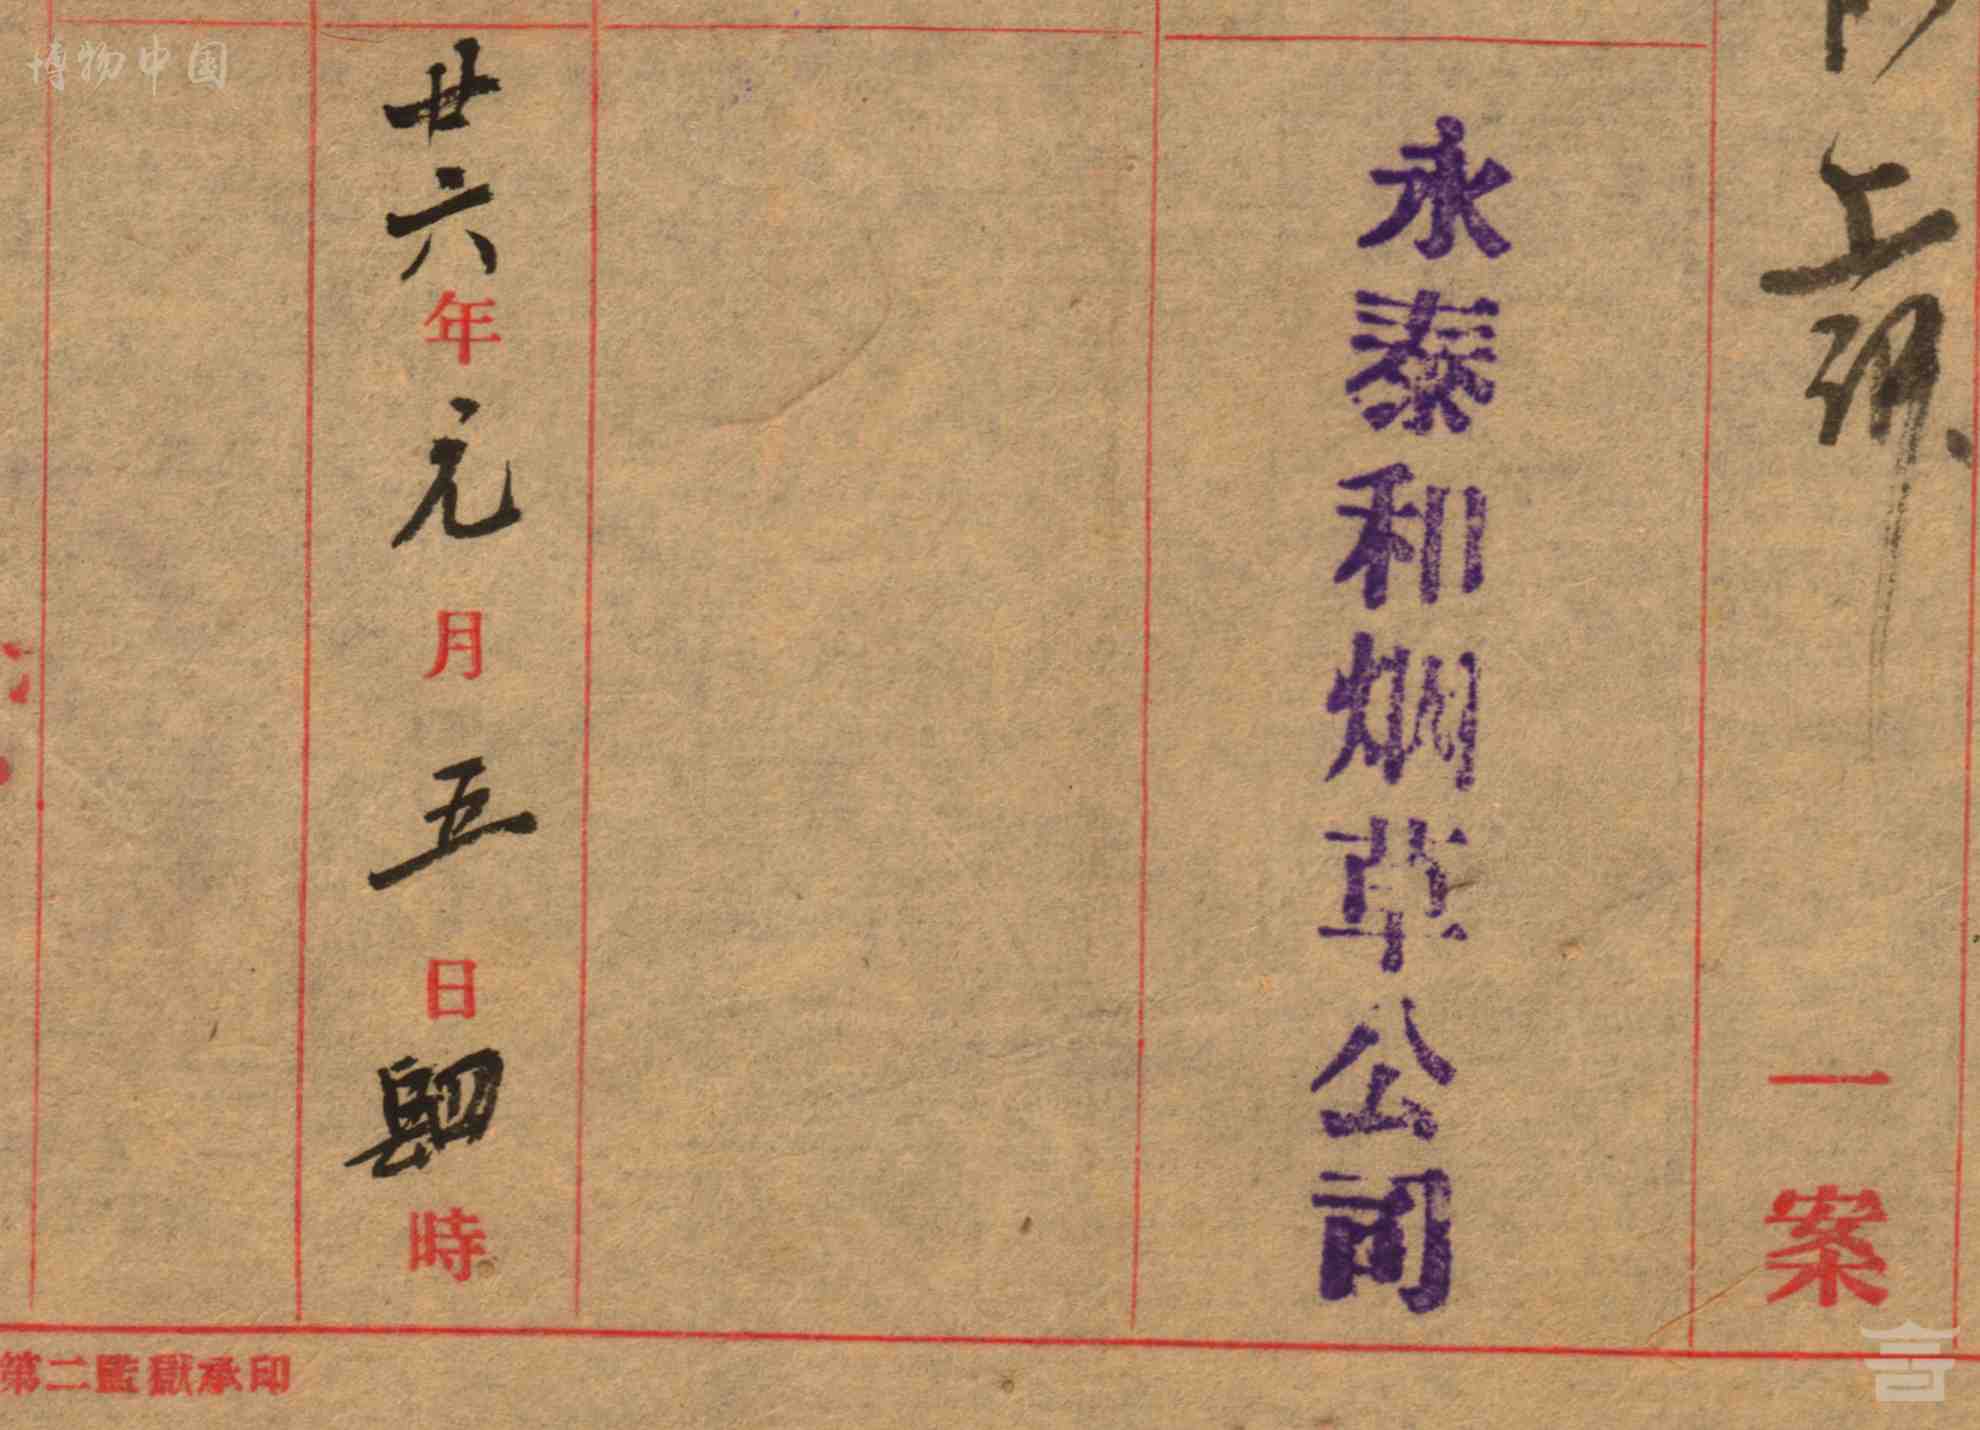 上訴
一案
永泰和烟草公司
廿六年元月五日
時
第二監獄承印
博物中国